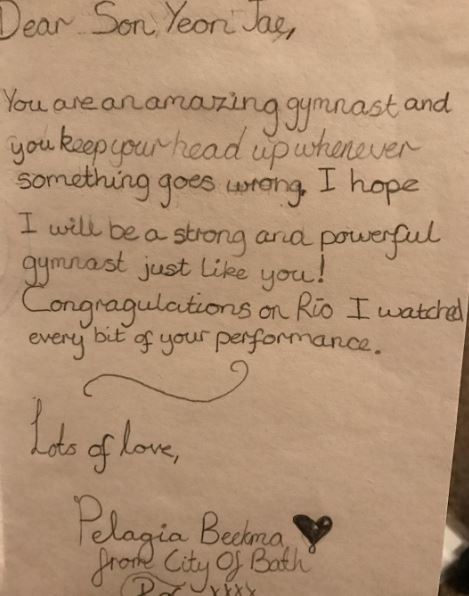 Dear Son Yeon Jae,
You are an amazing gymnast and
you keep your head up whenever
something goes wrong. I hope
I will be a strong and powerful
gymnast just like you!
Congragulations on Rio I watched
every bit of your performance.
Lots of love,
Pelagia Beekma
from City Of Bath
xxxx